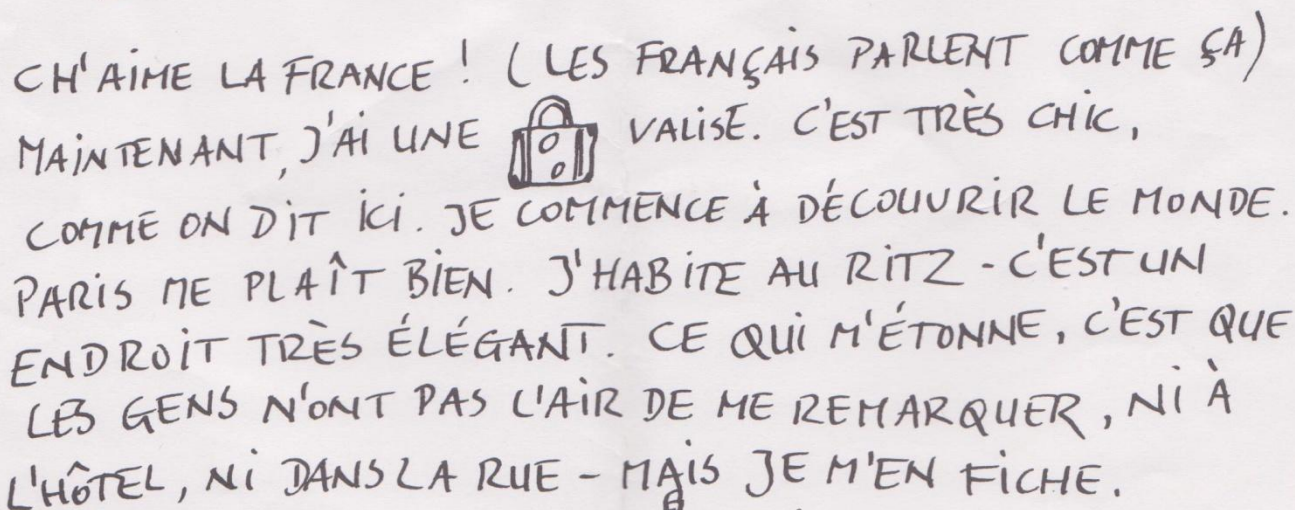 CH'AIME LA FRANCE ! (LES FRANÇAIS PARLENT COMME ÇA)
MAINTENANT, J'AI UNE VALISE. C'EST TRÈS CHIC,
COMME ON DIT ICI. JE COMMENCE À DÉCOUVRIR LE MONDE.
PARIS ME PLAÎT BIEN. J'HABITE AU RITZ - C'EST UN
ENDROIT TRÈS ÉLÉGANT. CE QUI M'ÉTONNE, C'EST QUE
LES GENS N'ONT PAS L'AIR DE ME REMARQUER, NI À
L'HÔTEL, NI DANS LA RUE - MAIS JE M'EN FICHE.